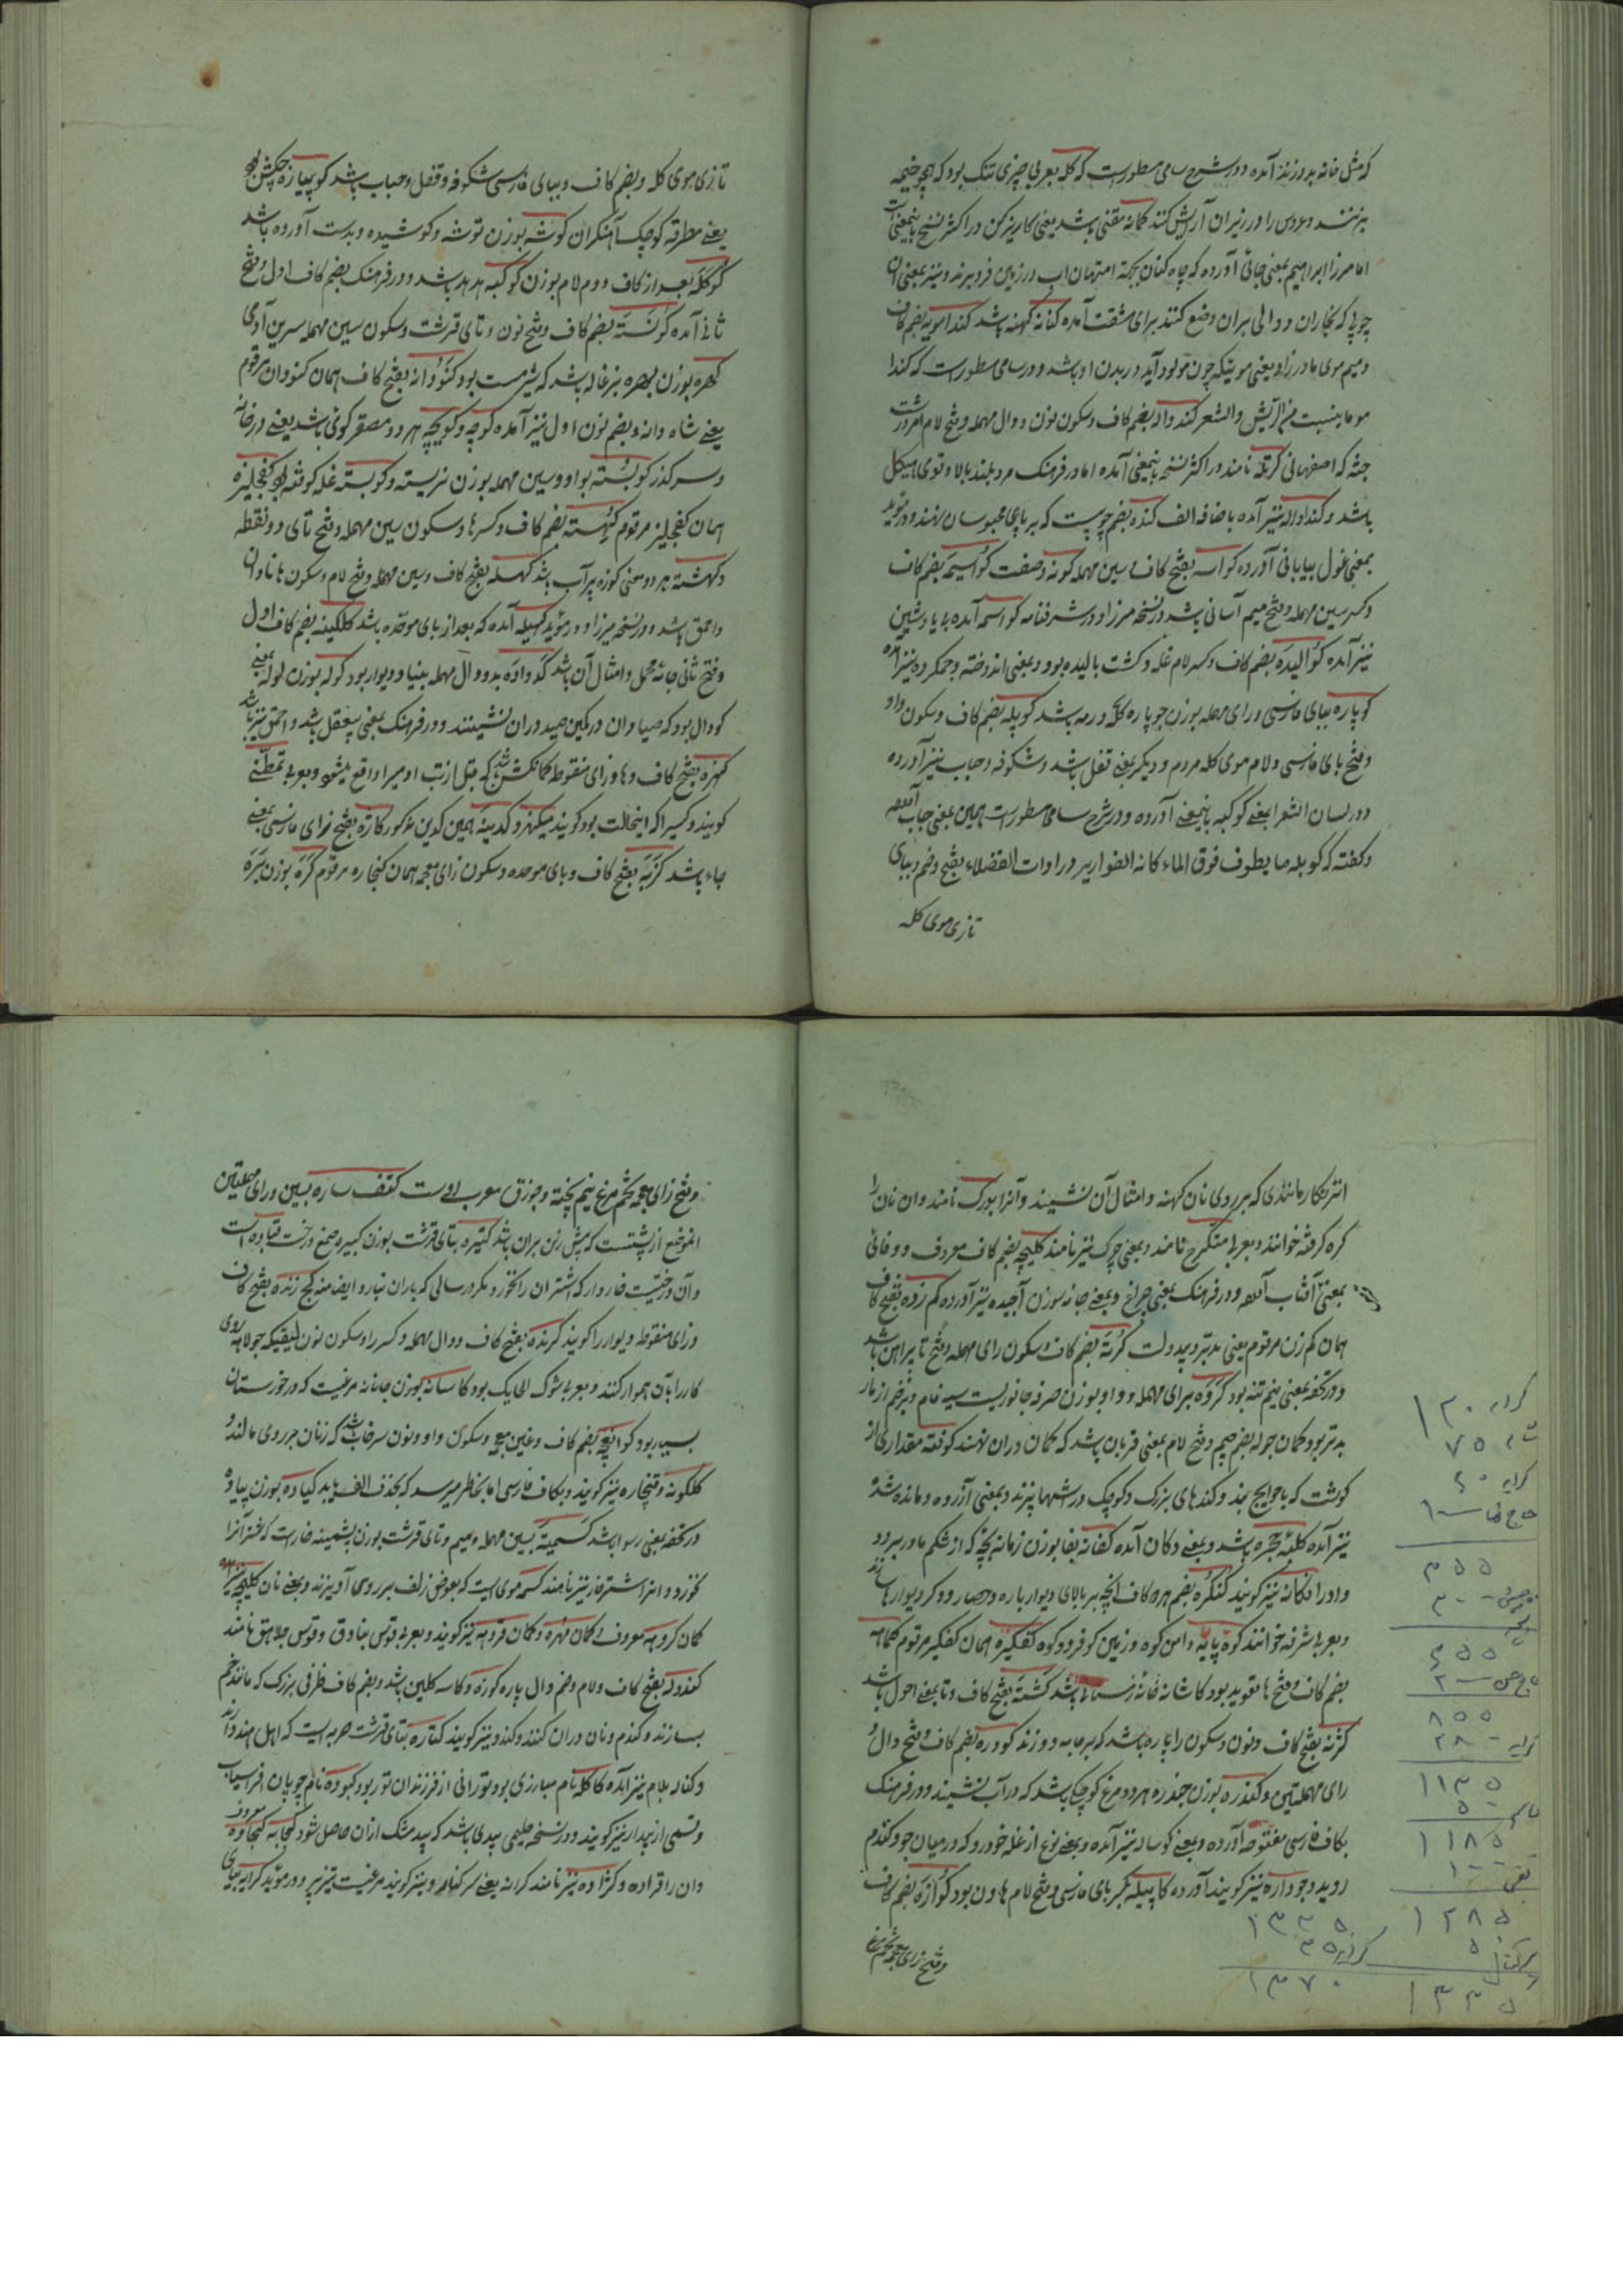 که مثل خانه بدوزند آمده و در شرح سامی مسطورست که کله بعربی چیزی تنک بود که همچو خیمه
بزنند و عروس را در زیر آن آرایش کنند کمانه مقنی باشد یعنی کاریزکن در اکثر نسخ باینمعنی است
اما مرزا ابراهیم بمعنی جائی آورده که چاه کنان بجهة امتحان آب در زمین فرو برند و نیز بمعنی آن
چوبی که نجاران دوالی بر آن وضع کنند برای مشقت آمده کنانه کهنه باشد کندامویه بضم کاف
و میم موی مادرزاد یعنی موئیکه چون مولود آید در بدن او باشد و در سامی مسطورست که کندا
مو ما ینبت من الریش والشعر کندواله بضم کاف و سکون نون و دال مهمله و فتح لام امرد درشت
جثه که اصفهانی کرتله نامند در اکثر نسخ باینمعنی آمده اما در فرهنک مرد بلند بالا و قوی هیکل
باشد و کنداواله نیز آمده باضافه الف کنده بضم چوبیست که بر پای محبوسان نهند و در مؤید
بمعنی غول بیابانی آورده کواسه بفتح کاف و سین مهمله کونه و صفت کواسیمه بضم کاف
و کسر سین مهمله و فتح میم آسانی باشد در نسخه مرزا و در شرفنامه کواسمه آمده بی یا و شین
نیز آمده کوالیده بضم کاف و کسر لام غله و کشت بالیده بود و بمعنی اندوخته و جمع کرده نیز آمده
کوپاره ببای فارسی و رای مهمله بوزن جوپاره کله و رمه باشد کوپله بضم کاف و سکون واو
و فتح بای فارسی و لام موی کله مردم و دیکر بمعنی قفل باشد و شکوفه و حباب نیز آورده
و در لسان الشعرا بمعنی کوکبه باینمعنی آورده و در شرح سامی مسطورست همین بمعنی حباب آمده
و کفته که کوبله ما یطوف فوق الماء کانه القواریر در ادات الفضلاء بفتح و ضم و ببای
تازی موی کله
تازی موی کله و بضم کاف و ببای فارسی شکوفه و قفل و حباب باشد کوپیازه چکش بود
یعنی مطرقه کوچک آهنکران کوشه بوزن توشه و کوشیده و بدست آورده باشد
کوکله بعد از کاف دوم لام بوزن کوکبه هدهد باشد و در فرهنک بضم کاف اول و فتح
ثانی آمده کونسته بضم کاف و فتح نون و تای قرشت و سکون سین مهمله سرین آدمی
کهره بوزن بهره بزغاله باشد که شیر مست بود کنودانه بفتح کاف همان کنودان مرقوم
یعنی شاه دانه و بضم نون اول نیز آمده کوچه و کویچه هر دو مصغر کوی باشد یعنی در خانه
و سر کذر کوبسته بواو و سین مهمله بوزن نریسته و کوبسته غله کوفته بود کفجلیزه
همان کفجلیز مرقوم کهسته بضم کاف و کسر ها و سکون سین مهمله و فتح تای دو نقطه
و کهشته بهر دو معنی کوزه پر آب باشد کهسله بفتح کاف و سین مهمله و فتح لام و سکون ها نادان
و احمق باشد و در نسخه میرزا و در مؤید کهبله آمده که بعد از بای موحده باشد کلکینه بضم کاف اول
و فتح ثانی جامه مخمل و امثال آن باشد کدواده بدو دال مهمله بنیاد دیوار بود کوله بوزن لوله بمعنی
کودال بود که صیادان در کمین صید در آن نشینند و در فرهنک بمعنی بیعقل باشد و احمق نیز باشد
کهزه بفتح کاف و ها و زای منقوطه کمانکشن باشد که قبل از تب آدمی را واقع میشود و بعربی تمطی
کویند و کسی را که اینحالت بود کویند میکهزد کدینه همین کدین مذکور کازه بفتح زای فارسی بمعنی
جاه باشد کزبه بفتح کاف و بای موحده و سکون زای معجمه همان کنجاره مرقوم کره بوزن بره
اثر زنکار مانندی که بر روی نان کهنه و امثال آن نشیند و آنرا بورک نامند و آن نان را
کره کرفته خوانند و بعربی متکرج نامند و بمعنی چرک نیز نامند کلیچه بضم کاف معروف و وفائی
بمعنی آفتاب آمده و در فرهنک بمعنی چراغ و بمعنی جامه سوزن آجیده نیز آورده کم زده بفتح کاف
همان کم زن مرقوم یعنی مدبر و بیدولت کرته بضم کاف و سکون رای مهمله و فتح تا پیراهن باشد
و در تحفه بمعنی نیم تنه بود کروه برای مهمله و واو بوزن صرفه جانوریست سیه فام و بزخم از مار
بدتر بود کمان جوله بضم جیم و فتح لام بمعنی قربان باشد که کمان در آن نهند کوفته مقداری از
کوشت که با حوایج بندند و کندهای بزرک و کوچک در شبها پزند و بمعنی آزرده و مانده شده
نیز آمده کلبه حجره باشد و بمعنی دکان آمده کفانه بفا بوزن زمانه بچه که از شکم مادر برود
و او را افکانه نیز کویند کنکره بضم هر دو کاف انچه بر بالای دیوار باره و حصار و کرد دیوارها سازند
و بعربی شرفه خوانند کوه پایه دامن کوه و زمین کوفرود کوه کفکیره همان کفکیر مرقوم کماهه
بضم کاف و فتح ها تعوید بود کاشانه خانه زمستانی باشد کشته بفتح کاف و تا بمعنی احول باشد
رای مهملتین و کندره بوزن جندره هر دو مرغ کوچکی باشد که در آب نشیند و در فرهنک
بکاف فارسی مفتوحه آورده و بمعنی کوساله نیز آمده و بمعنی نوع از غله خودرو که در میان جو و کندم
روید و جودره نیز کویند آورده کاپیله بکسر بای فارسی و فتح لام هاون بود کوازه بضم کاف
و فتح زای معجمه تخم مرغ
و فتح زای معجمه تخم مرغ نیم پخته و جوزق معرب اوست کتف ساره بسین و رای مهملتین
الموضع از پشتست که پیش زین بر آن باشد کتیره بتای قرشت بوزن کبیره صمغ درخت قتادهاست
و آن درختیست خاردار که اشتران را نخورد مکر در سالی که باران نبارد ایضا منه کج زنده بفتح کاف
و زای منقوطه دیوار را کویند کرنده بفتح کاف و دال مهمله و کسر را و سکون نون لیفیکه جولاهه روی
کار را بآن هموار کنند و بعربی شوک الحایک بود کاسانه بوزن جانانه مرغیست که در خورستان
بسیار بود کوانچه بضم کاف و غین معجمه و سکون واو و نون سرخاب باشد که زنان بر روی مالند و
کلکونه و غنجاره نیز کویند و بکاف فارسی اما بخاطر میرسد که بحذف الف باید کیاده بوزن پیاده
در تحفه بمعنی رسوا باشد کسمیته بسین مهمله و میم و تای قرشت بوزن پشمینه خاریست که شتر آنرا
خورد و آنرا اشترخار نیز نامند کسمه موی است که بعوض زلف بر روی آویزند و بمعنی نان کلیچه نیز آمده
کمان کروهه معروف و کمان مهره و کمان قروهه نیز کویند و بعربی قوس بنادق و قوس جلاهق نامند
کندوله بفتح کاف و لام و ضم دال پاره کوزه و کاسه کلین باشد و بضم کاف ظرفی بزرک که مانند خم
بسازند و کندم و نان در آن کنند و کندو نیز کویند کتاره بتای قرشت حربه ایست که اهل هند دارند
و کناله بلام نیز آمده کاکله نام مبارزی بود تورانی از فرزندان تور بود کبوده نام چوپان افراسیاب
و قسمی از بید را نیز کویند و در نسخه حلیمی بیدی باشد که بید مشک از آن حاصل شود کجابه کجاوه معروف
و آن را قراده و کژاوه نیز نامند کرانه یعنی سر کنار و نیز کویند مرغیست تیز پر و در مؤید کرایه بیای
کرایه ۱۲۰
۷۵
کرایه ۶۰
۱۰۰
۳۵۵
۳۰۰
۶۵۵
۲۰۰
۸۵۵
کرایه ۲۸۰
۱۱۳۵
۵۰
۱۱۸۵
۱۰۰
۱۲۸۵
۵۰
۱۳۳۵
۱۳۳۵
کرایه ۳۵
۱۳۷۰